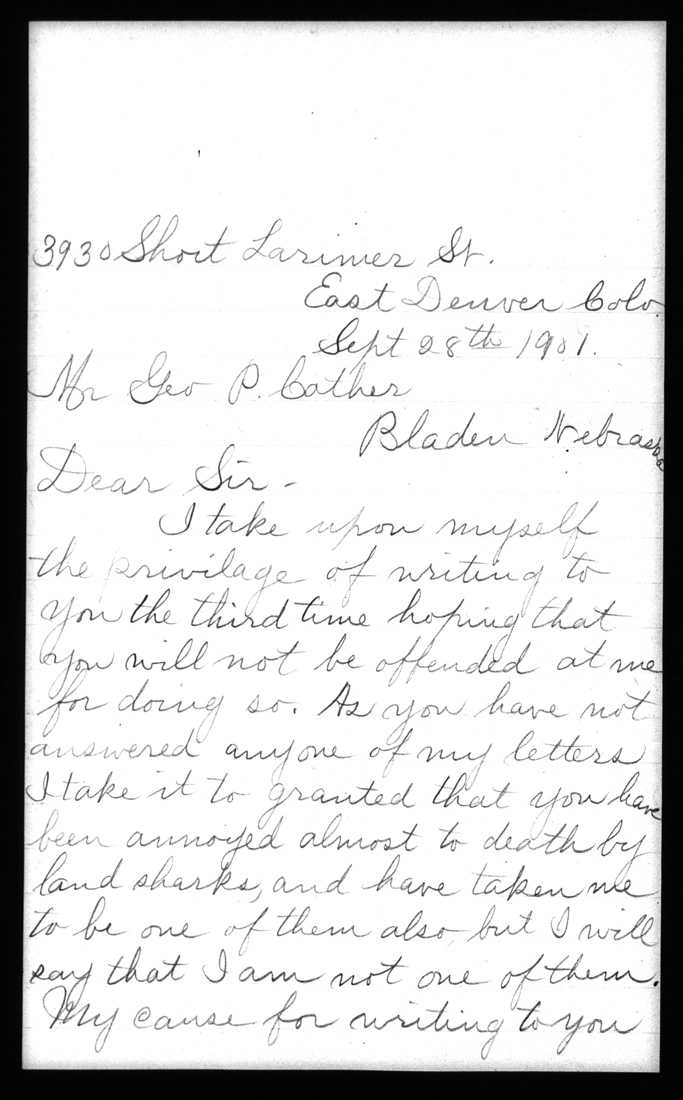 3930 Short Larimer St.
East Denver Colo.
Sept 28th 1901.
Mr Geo P. Cather
Bladen Nebraska
Dear Sir -
I take upon myself
the privilage of writing to
you the third time hoping that
you will not be offended at me
for doing so. As you have not
answered anyone of my letters
I take it to granted that you have
been annoyed almost to death by
land sharks, and have taken me
to be one of them also, but I will
say that I am not one of them.
My cause for writing to you